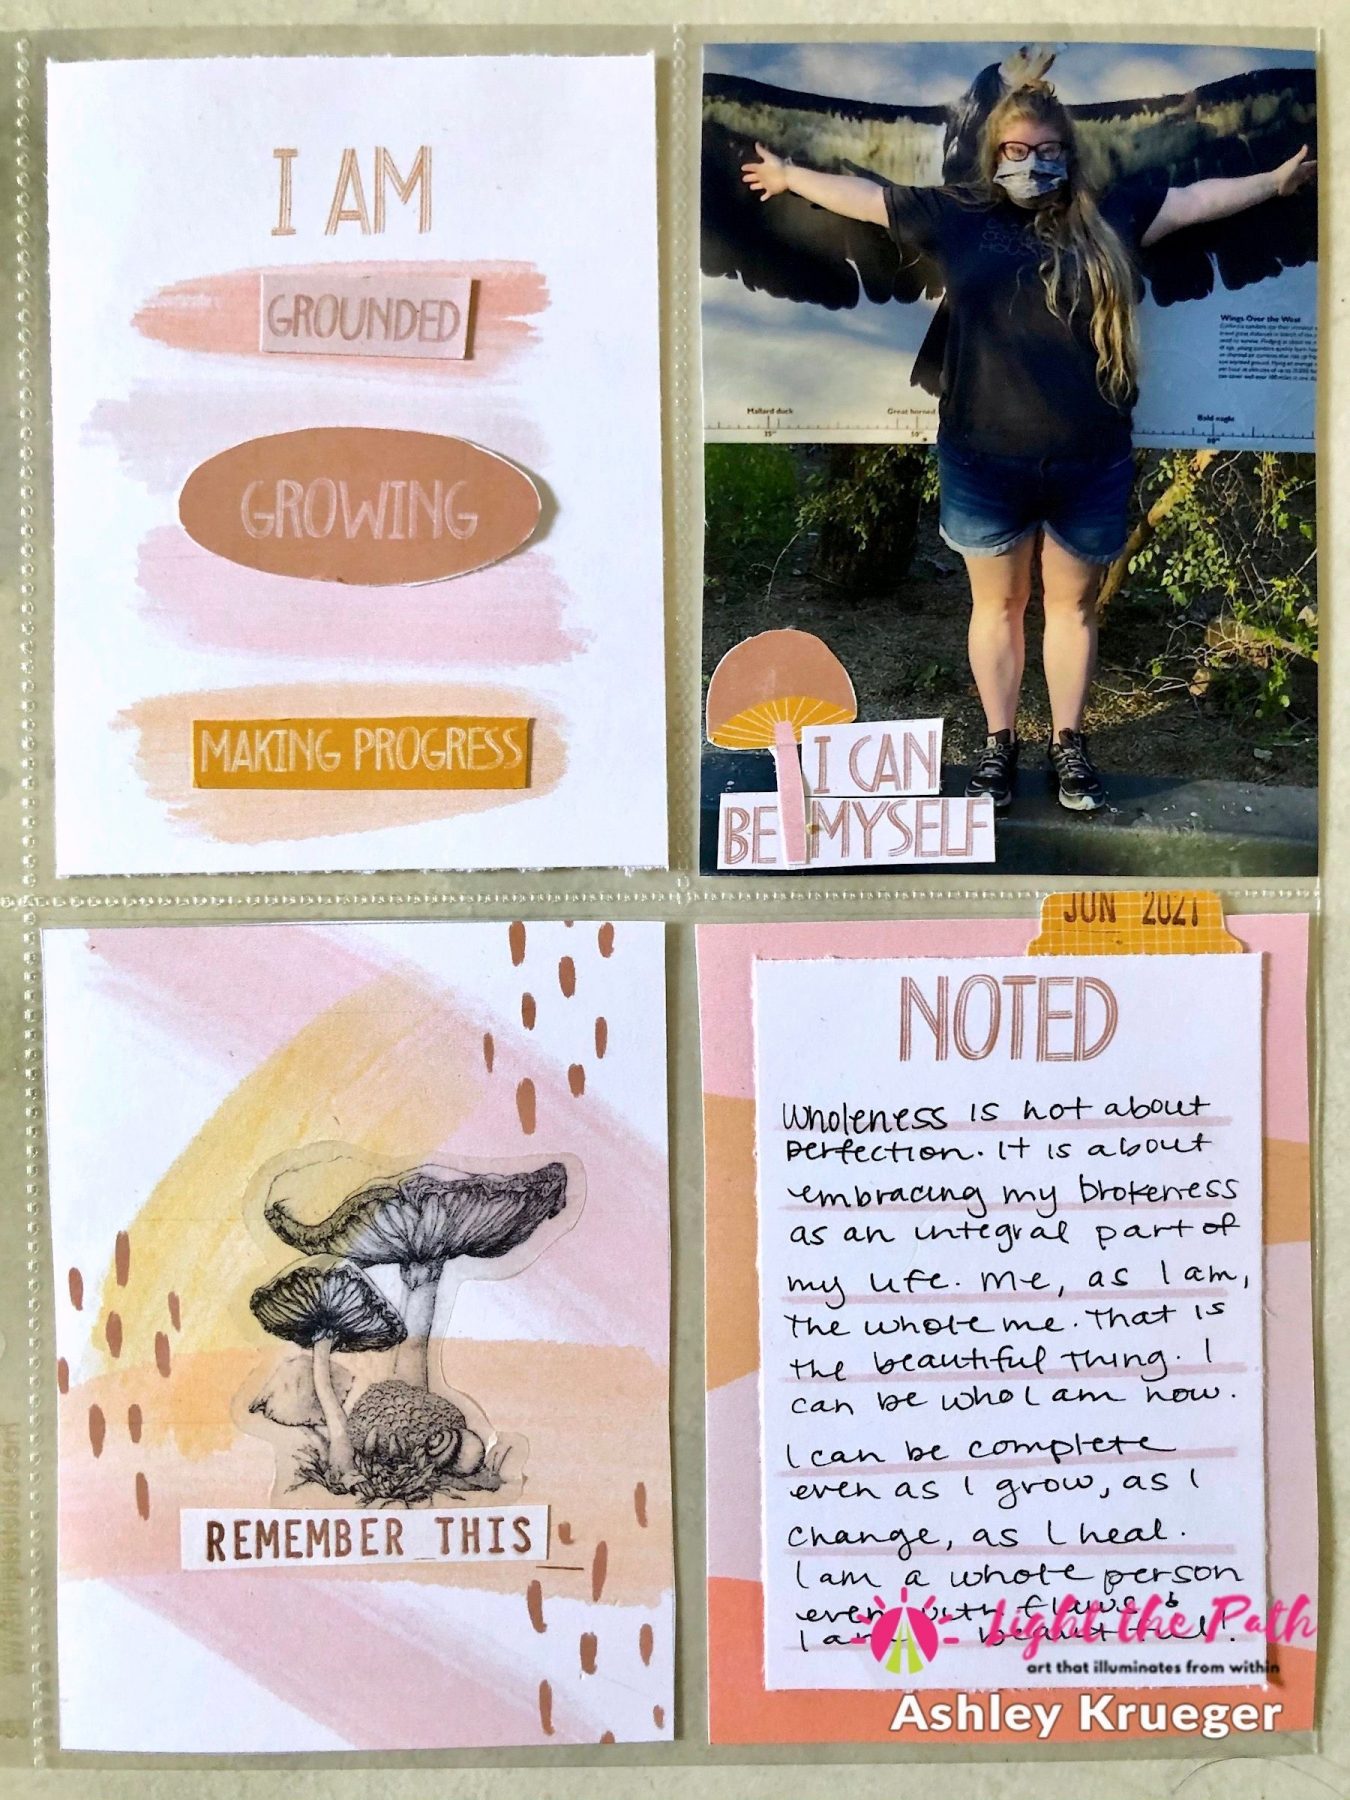 I AM
GROUNDED
GROWING
MAKING PROGRESS
Wings Over the West
Mallard duck
Great horned
Bald eagle
35"
50"
80"
I CAN
BE MYSELF
REMEMBER THIS
JUN 2021
NOTED
Wholeness is not about
perfection. It is about
embracing my brokeness
as an integral part of
my life. Me, as I am,
the whole me. That is
the beautiful thing. I
can be who I am now.
I can be complete
even as I grow, as I
change, as I heal.
I am a whole person
even with flaws &
I am beautiful!
Light the Path
art that illuminates from within
Ashley Krueger